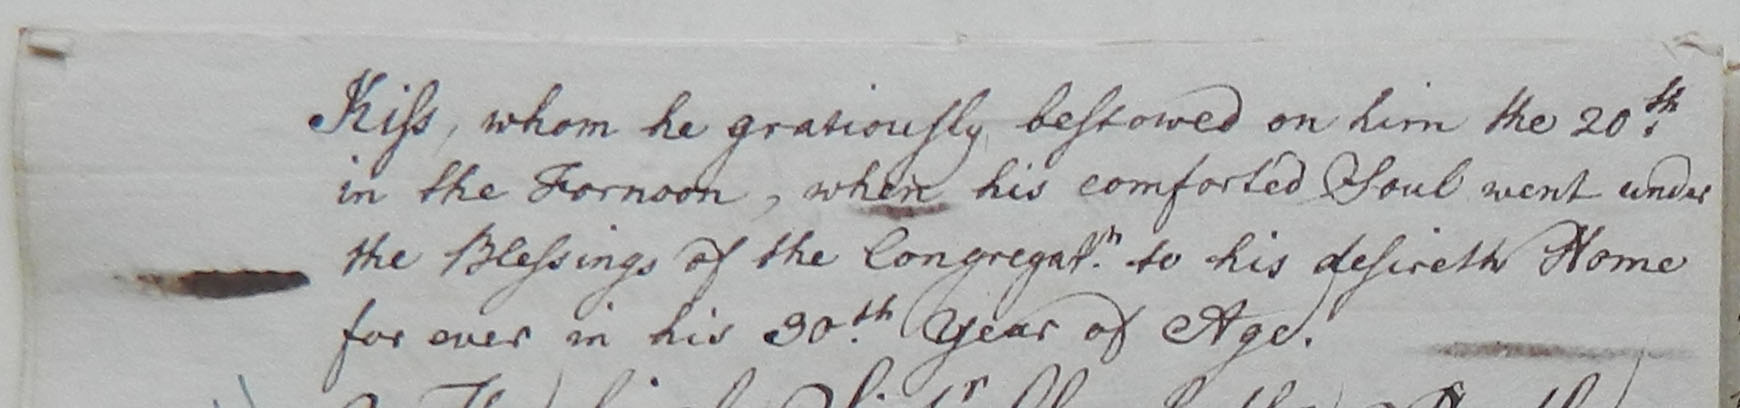 Kiss, whom he gratiously bestowed on him the 20th.
in the Fornoon, when his comforted Soul went under
the Blessings of the Congregatn. to his desireth Home
for ever in his 30th. Year of Age.